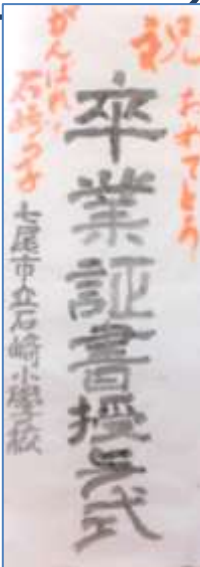 祝 おめでとう
卒業証書授与式
がんばれ!
石崎っ子
七尾市立石崎小學校